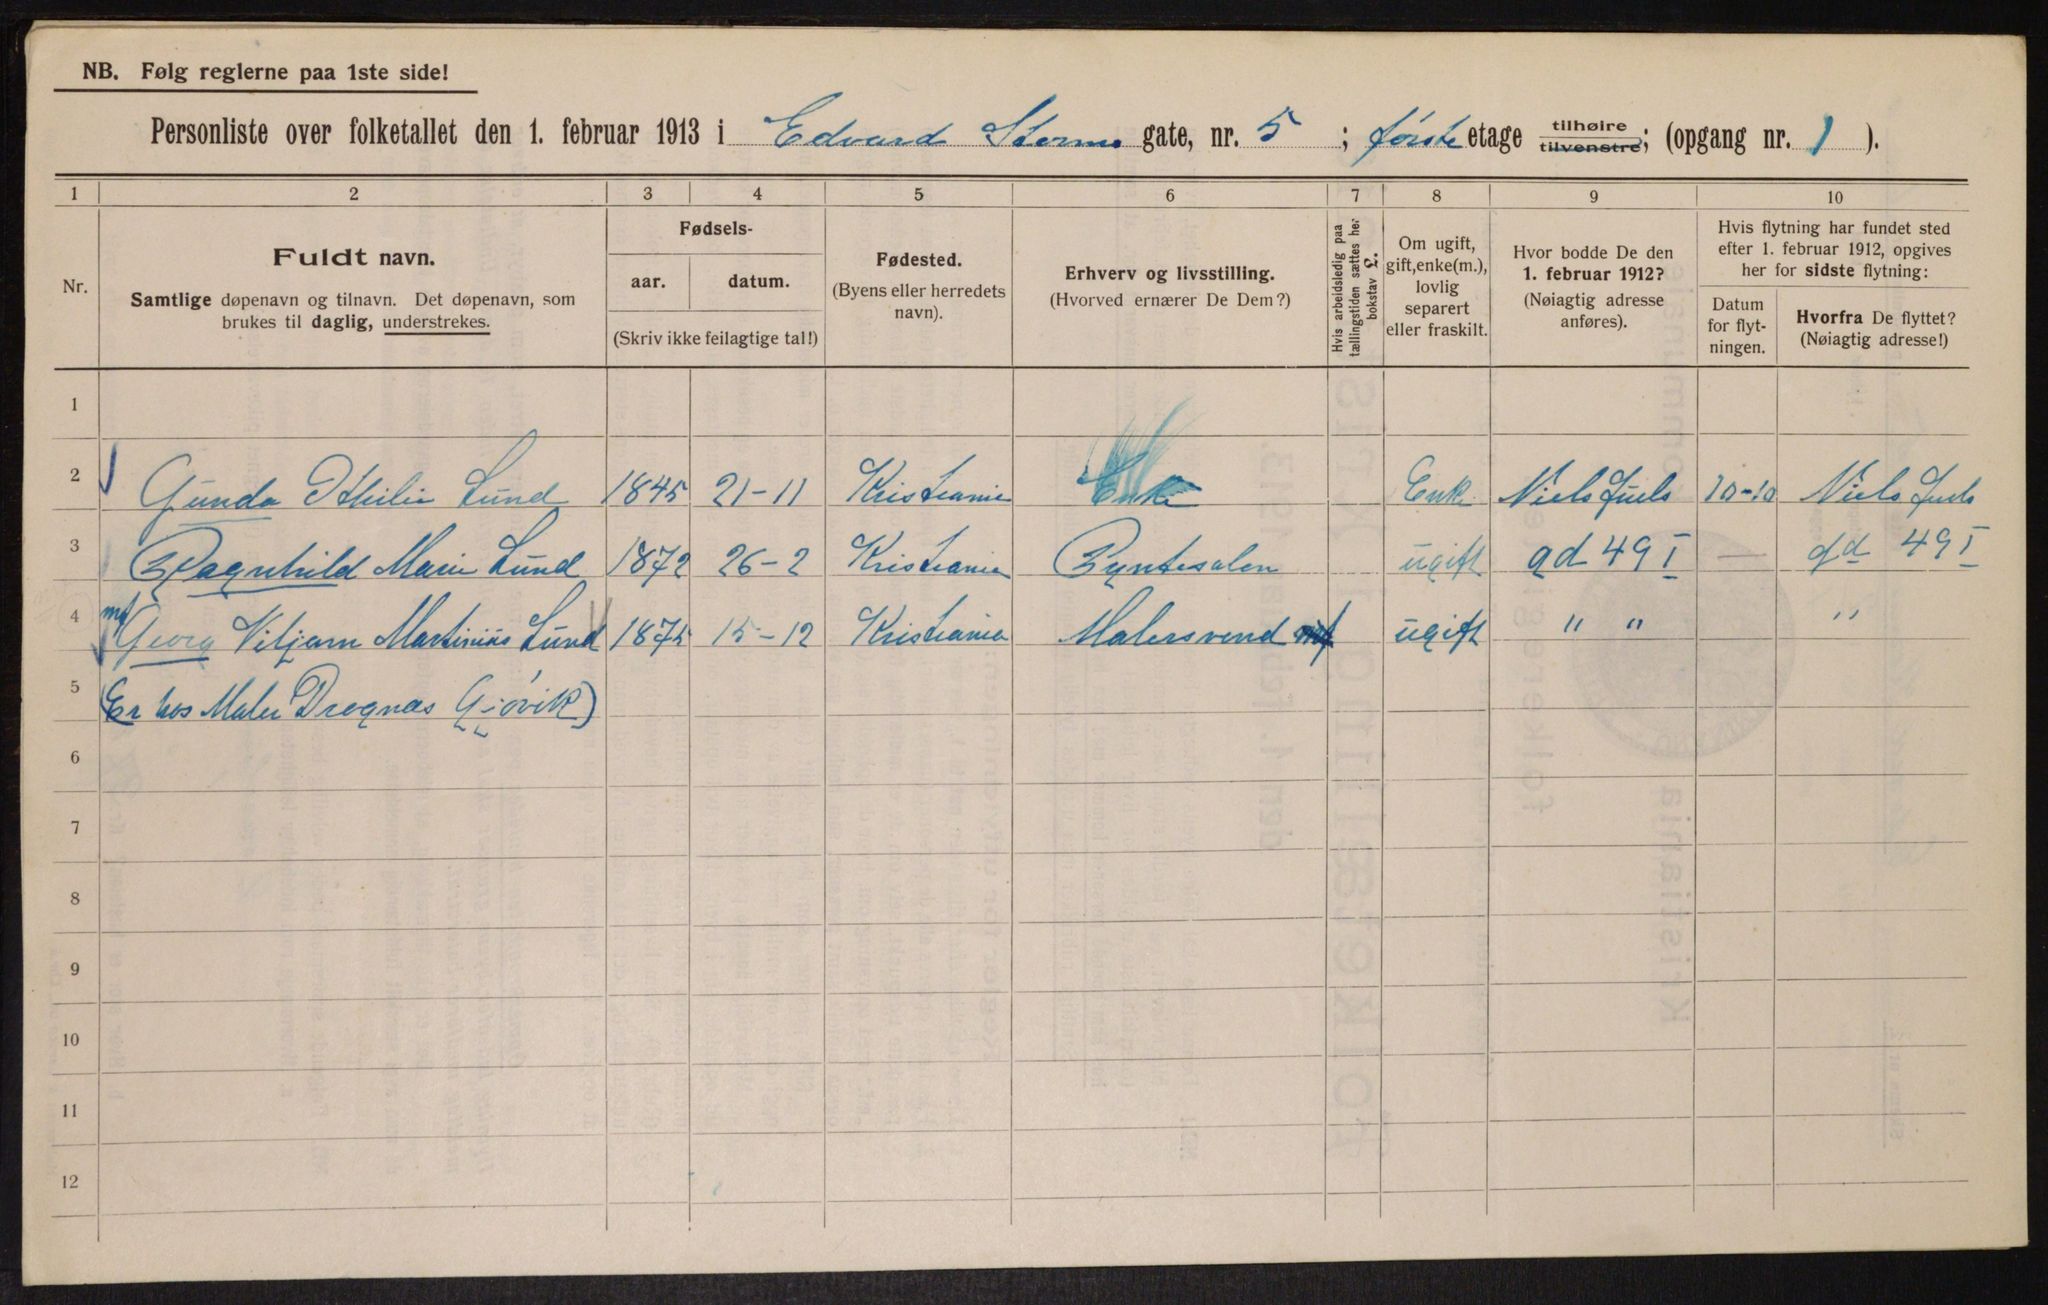 NB. Følg reglerne paa 1ste side!
Personliste over folketallet den 1. februar 1913 i Edvard Storms gate, nr. 5 ; første etage tilhøire tilvenstre; (opgang nr. 1 ).
1 2 3 4 5 6 7 8 9 10
Nr.
Fuldt navn.
Samtlige døpenavn og tilnavn. Det døpenavn, som
brukes til daglig, understrekes.
Fødsels-
aar. datum.
(Skriv ikke feilagtige tal!)
Fødested.
(Byens eller herredets
navn).
Erhverv og livsstilling.
(Hvorved ernærer De Dem?)
Hvis arbeidsledig paa
tællingstiden sættes her
bokstav L.
Om ugift,
gift, enke(m.),
lovlig
separert
eller fraskilt.
Hvor bodde De den
1. februar 1912?
(Nøiagtig adresse
anføres).
Hvis flytning har fundet sted
efter 1. februar 1912, opgives
her for sidste flytning:
Datum
for flyt-
ningen.
Hvorfra De flyttet?
(Nøiagtig adresse!)
1
2 Gunda Othilie Lund 1845 21-11 Kristiania Enke Enk Niels Juels 10-10 Niels Juels
3 Ragnhild Marie Lund 1872 26-2 Kristiania Pyntesalon ugift gd 49 I — gd 49 I
4 mf Georg Viljam Martinius Lund 1875 15-12 Kristiania Malersvend mf ugift " " "
5 (Er hos Maler Dregnæs Gjövik)
6
7
8
9
10
11
12